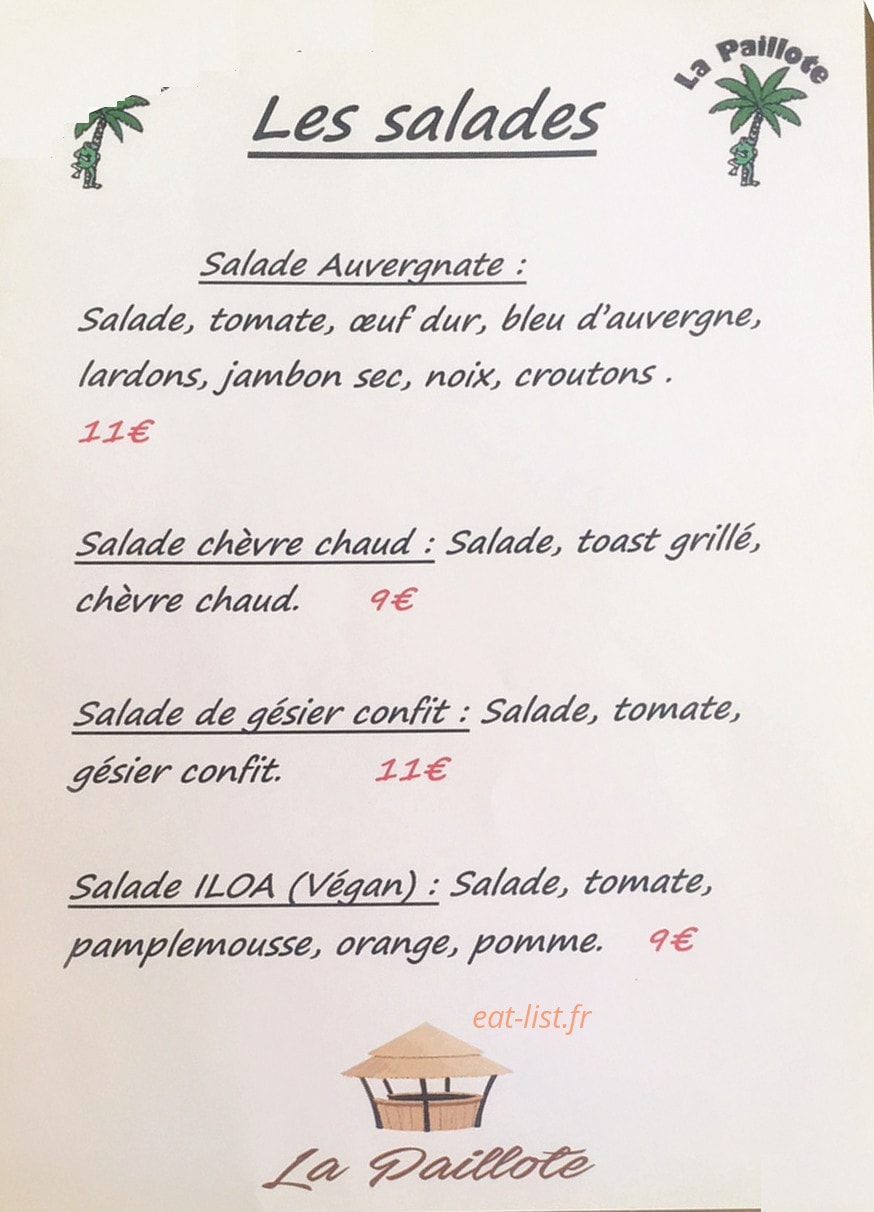 La Paillote
Les salades
Salade Auvergnate :
Salade, tomate, œuf dur, bleu d'auvergne,
lardons, jambon sec, noix, croutons .
11€
Salade chèvre chaud : Salade, toast grillé,
chèvre chaud. 9€
Salade de gésier confit : Salade, tomate,
gésier confit. 11€
Salade ILOA (Végan) : Salade, tomate,
pamplemousse, orange, pomme. 9€
eat-list.fr
La Paillote